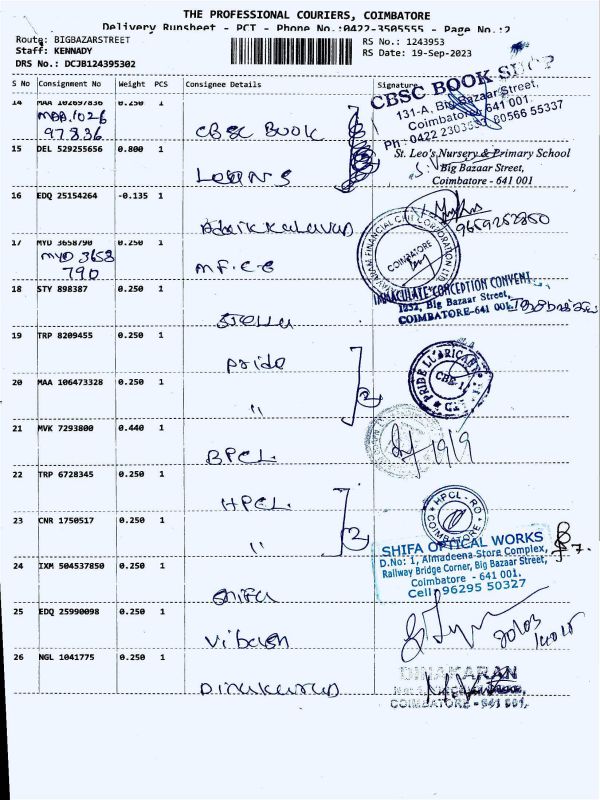 THE PROFESSIONAL COURIERS, COIMBATORE
Delivery Runsheet - PCT - Phone No.:0422-3505555 - Page No.:2
Route: BIGBAZARSTREET
Staff: KENNADY
DRS No.: DCJB124395302
RS No.: 1243953
RS Date: 19-Sep-2023
S No Consignment No Weight PCS Consignee Details Signature
14 MAA 102697836 0.250 1
97836
CBSC BOOK
CBSC BOOK SHOP
131-A, Big Bazaar Street,
Coimbatore 641 001
Ph: 0422 80566 55337
15 DEL 529255656 0.800 1
St. Leo's Nursery & Primary School
Big Bazaar Street,
Coimbatore - 641 001
16 EDQ 25154264 -0.135 1
9659252850
17 MYD 3658790 0.250 1
MYD 3658
790
M.F.C.C
COIMBATORE
18 STY 898387 0.250 1
Stella
IMMACULATE CONCEPTION CONVENT
1232, Big Bazaar Street,
COIMBATORE-641 001
19 TRP 8209455 0.250 1
Pride
20 MAA 106473328 0.250 1
"
2
21 MVK 7293800 0.440 1
BPCL
19/9
22 TRP 6728345 0.250 1
HPCL.
HPCL-RO
COIMBATORE
23 CNR 1750517 0.250 1
"
2
SHIFA OPTICAL WORKS
D.No: 1, Almadeena Store Complex,
Railway Bridge Corner, Big Bazaar Street,
Coimbatore - 641 001.
Cell: 96295 50327
24 IXM 504537850 0.250 1
Shifa
25 EDQ 25990098 0.250 1
Vibash
26 NGL 1041775 0.250 1
Dinakaran
DINAKARAN
COIMBATORE - 641 001.